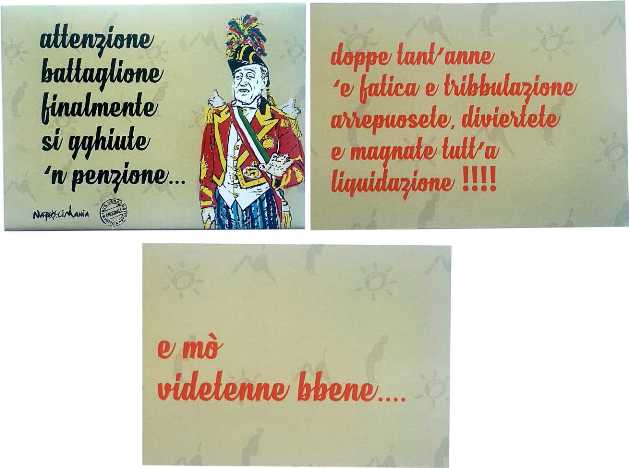 attenzione
battaglione
finalmente
si gghiute
'n penzione...
NapoliMania
doppe tant'anne
'e fatica e tribbulazione
arrepuosete, diviertete
e magnate tutt'a
liquidazione !!!!
e mò
videtenne bbene....